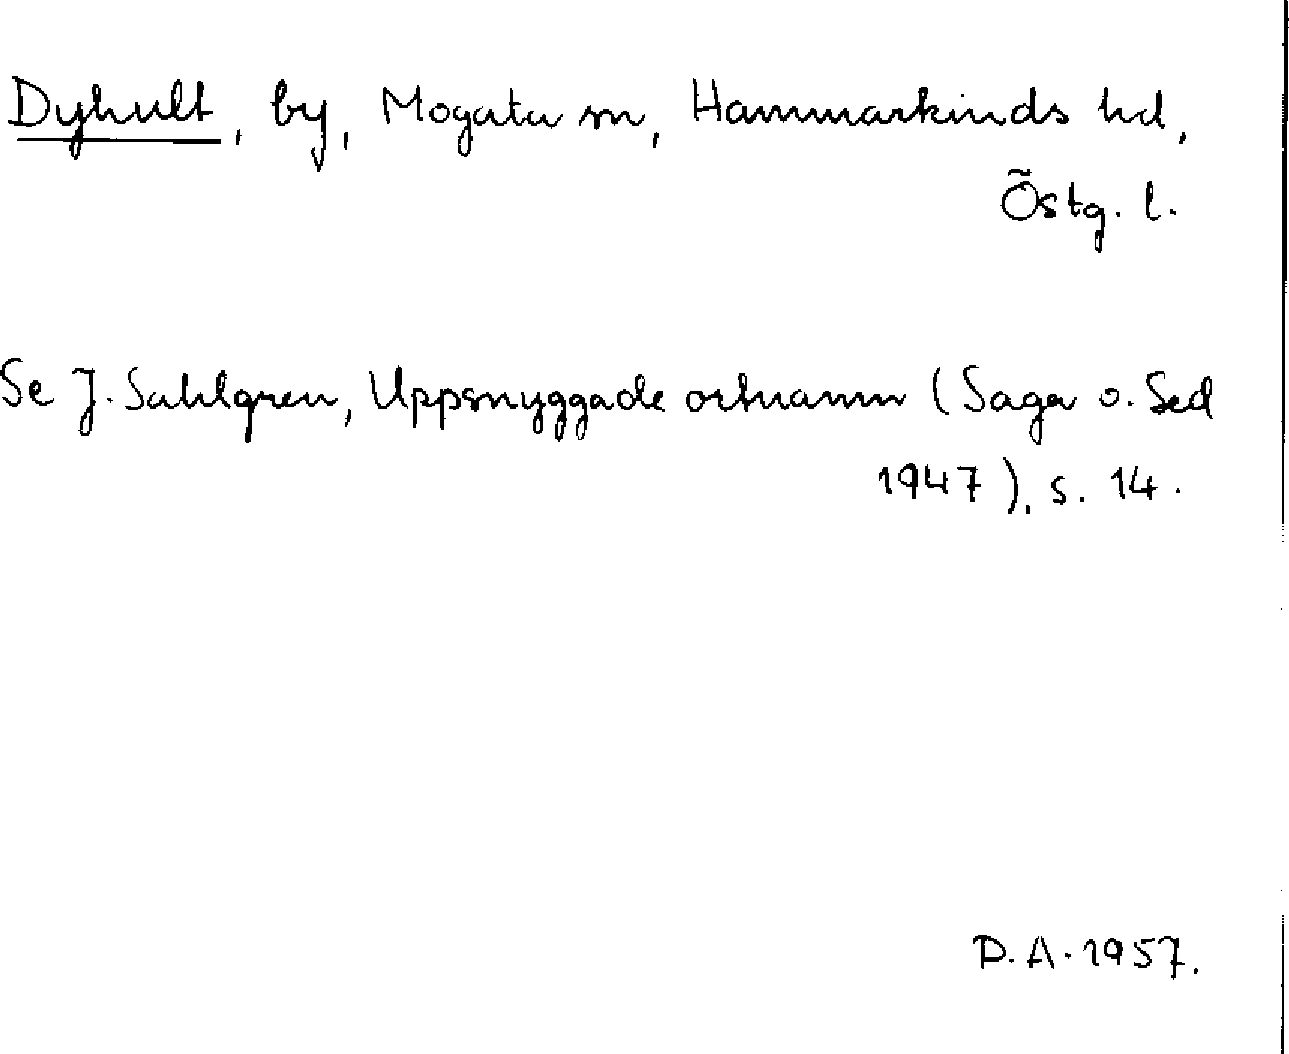 Dyhult, by, Mogata sn, Hammarkinds hd,
Östg. l.
Se J. Sahlgren, Uppsnyggade ortnamn (Saga o. Sed
1947), s. 14.
D. A. 1957.